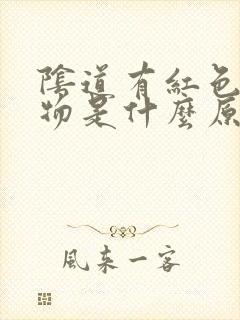 陰道有紅色
物是什麼原
風來一客